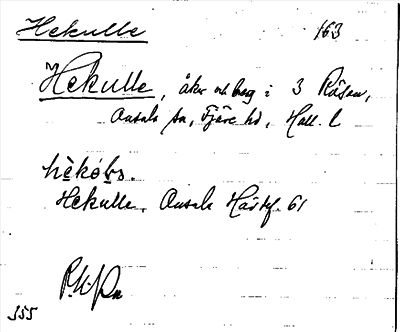 Hekulle 163
Hekulle, åker och berg i 3 Råsen,
Onsala sn, Fjäre hd, Hall. l
hèkó
Hekulle. Onsala Häskf. 61
355